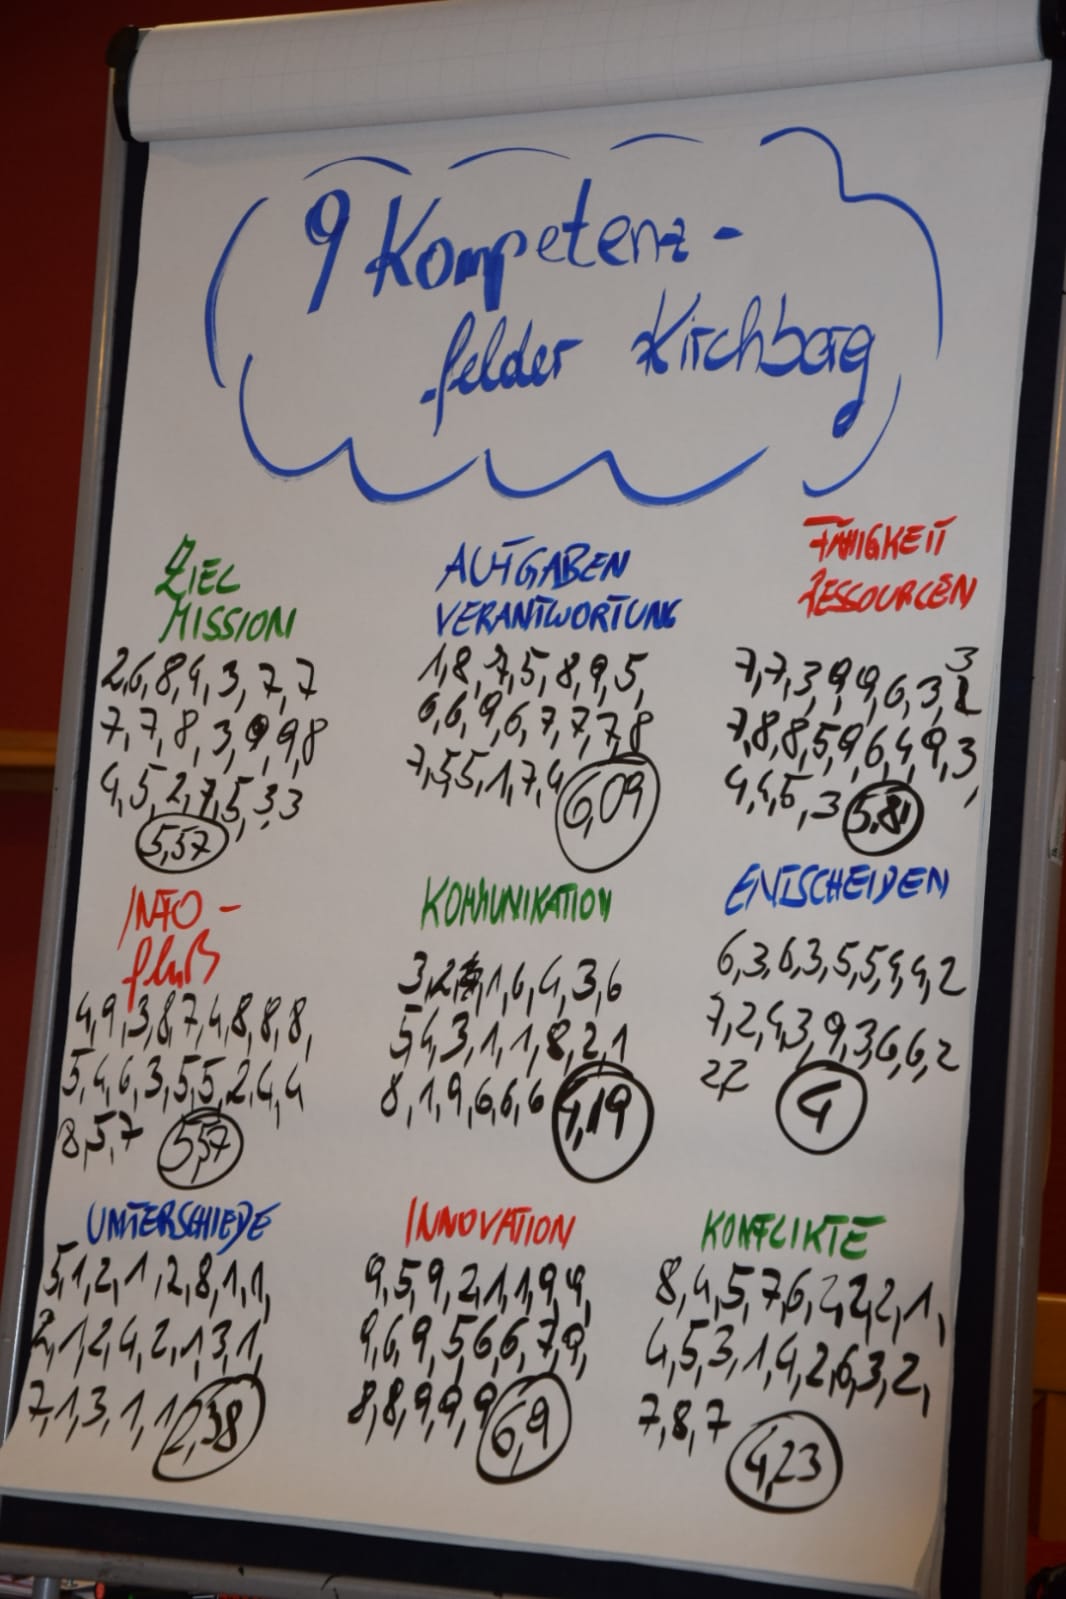 9 Kompetenz-
-felder Kirchberg
ZIEL
MISSION
2,6,8,4,3,7,7
7,7,8,3,9,9,8
4,5,2,7,5,3,3
5,57
AUFGABEN
VERANTWORTUNG
1,8,7,5,8,9,5,
6,6,9,6,7,7,7,8
7,5,5,1,7,4
6,09
FÄHIGKEIT
RESSOURCEN
3
7,7,3,9,9,6,3,
7,8,8,5,9,6,4,9,3,
4,4,5,3
5,81
INFO-
fluß
4,9,3,8,7,4,8,8,8,
5,4,6,3,5,5,2,4,4
8,5,7
5,57
KOMMUNIKATION
3,2,1,6,4,3,6
5,4,3,1,1,8,2,1
8,1,9,6,6,6
4,19
ENTSCHEIDEN
6,3,6,3,5,5,4,4,2
7,2,4,3,9,3,6,6,2
2,2
4
UNTERSCHIEDE
5,1,2,1,2,8,1,1,
2,1,2,4,2,1,3,1,
7,1,3,1,1
2,38
INNOVATION
9,5,9,2,1,1,9,9,
9,6,9,5,6,6,7,9,
8,8,9,9,9
6,9
KONFLIKTE
8,4,5,7,6,2,2,2,1,
4,5,3,1,4,2,6,3,2,
7,8,7
4,23